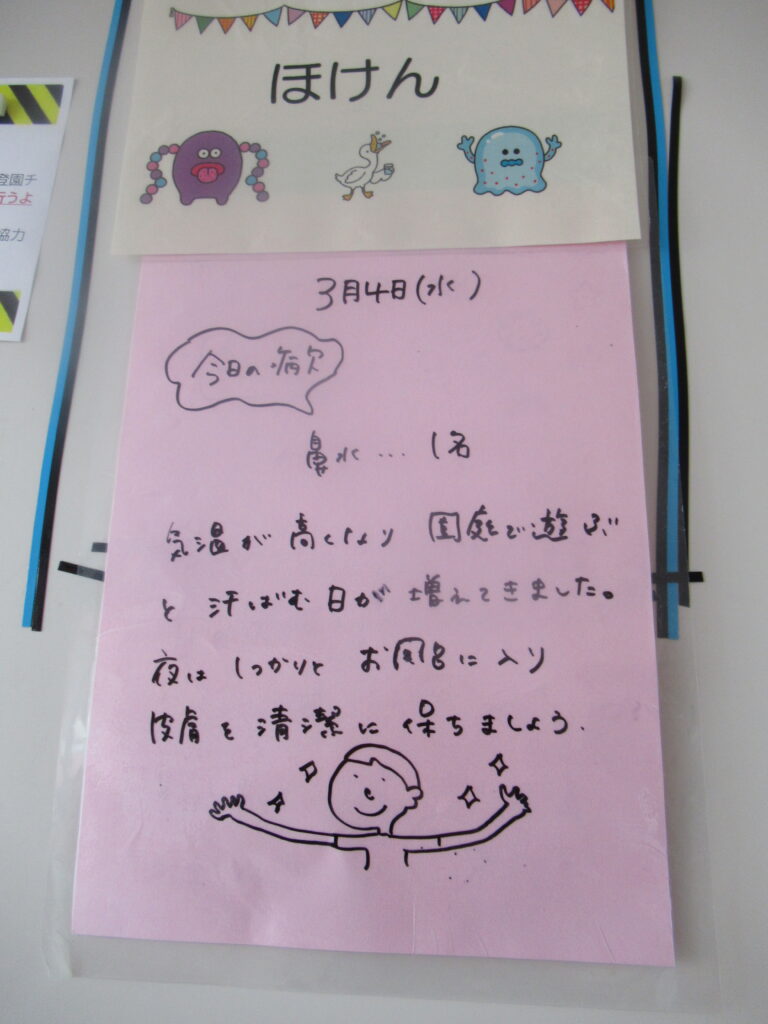 ほけん
登園チ
行うよ
協力
3月4日(水)
今日の病欠
鼻水… 1名
気温が高くなり 園庭で遊ぶ
と汗ばむ日が増えてきました。
夜はしっかりとお風呂に入り
皮膚を清潔に保ちましょう.